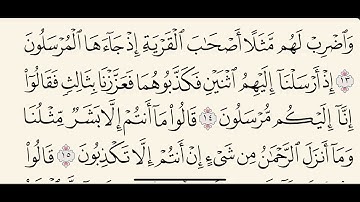 وَٱضْرِبْ لَهُم مَّثَلًا أَصْحَٰبَ ٱلْقَرْيَةِ إِذْ جَآءَهَا ٱلْمُرْسَلُونَ
١٣ إِذْ أَرْسَلْنَآ إِلَيْهِمُ ٱثْنَيْنِ فَكَذَّبُوهُمَا فَعَزَّزْنَا بِثَالِثٍ فَقَالُوٓا۟
إِنَّآ إِلَيْكُم مُّرْسَلُونَ ١٤ قَالُوا۟ مَآ أَنتُمْ إِلَّا بَشَرٌ مِّثْلُنَا
وَمَآ أَنزَلَ ٱلرَّحْمَٰنُ مِن شَىْءٍ إِنْ أَنتُمْ إِلَّا تَكْذِبُونَ ١٥ قَالُوا۟